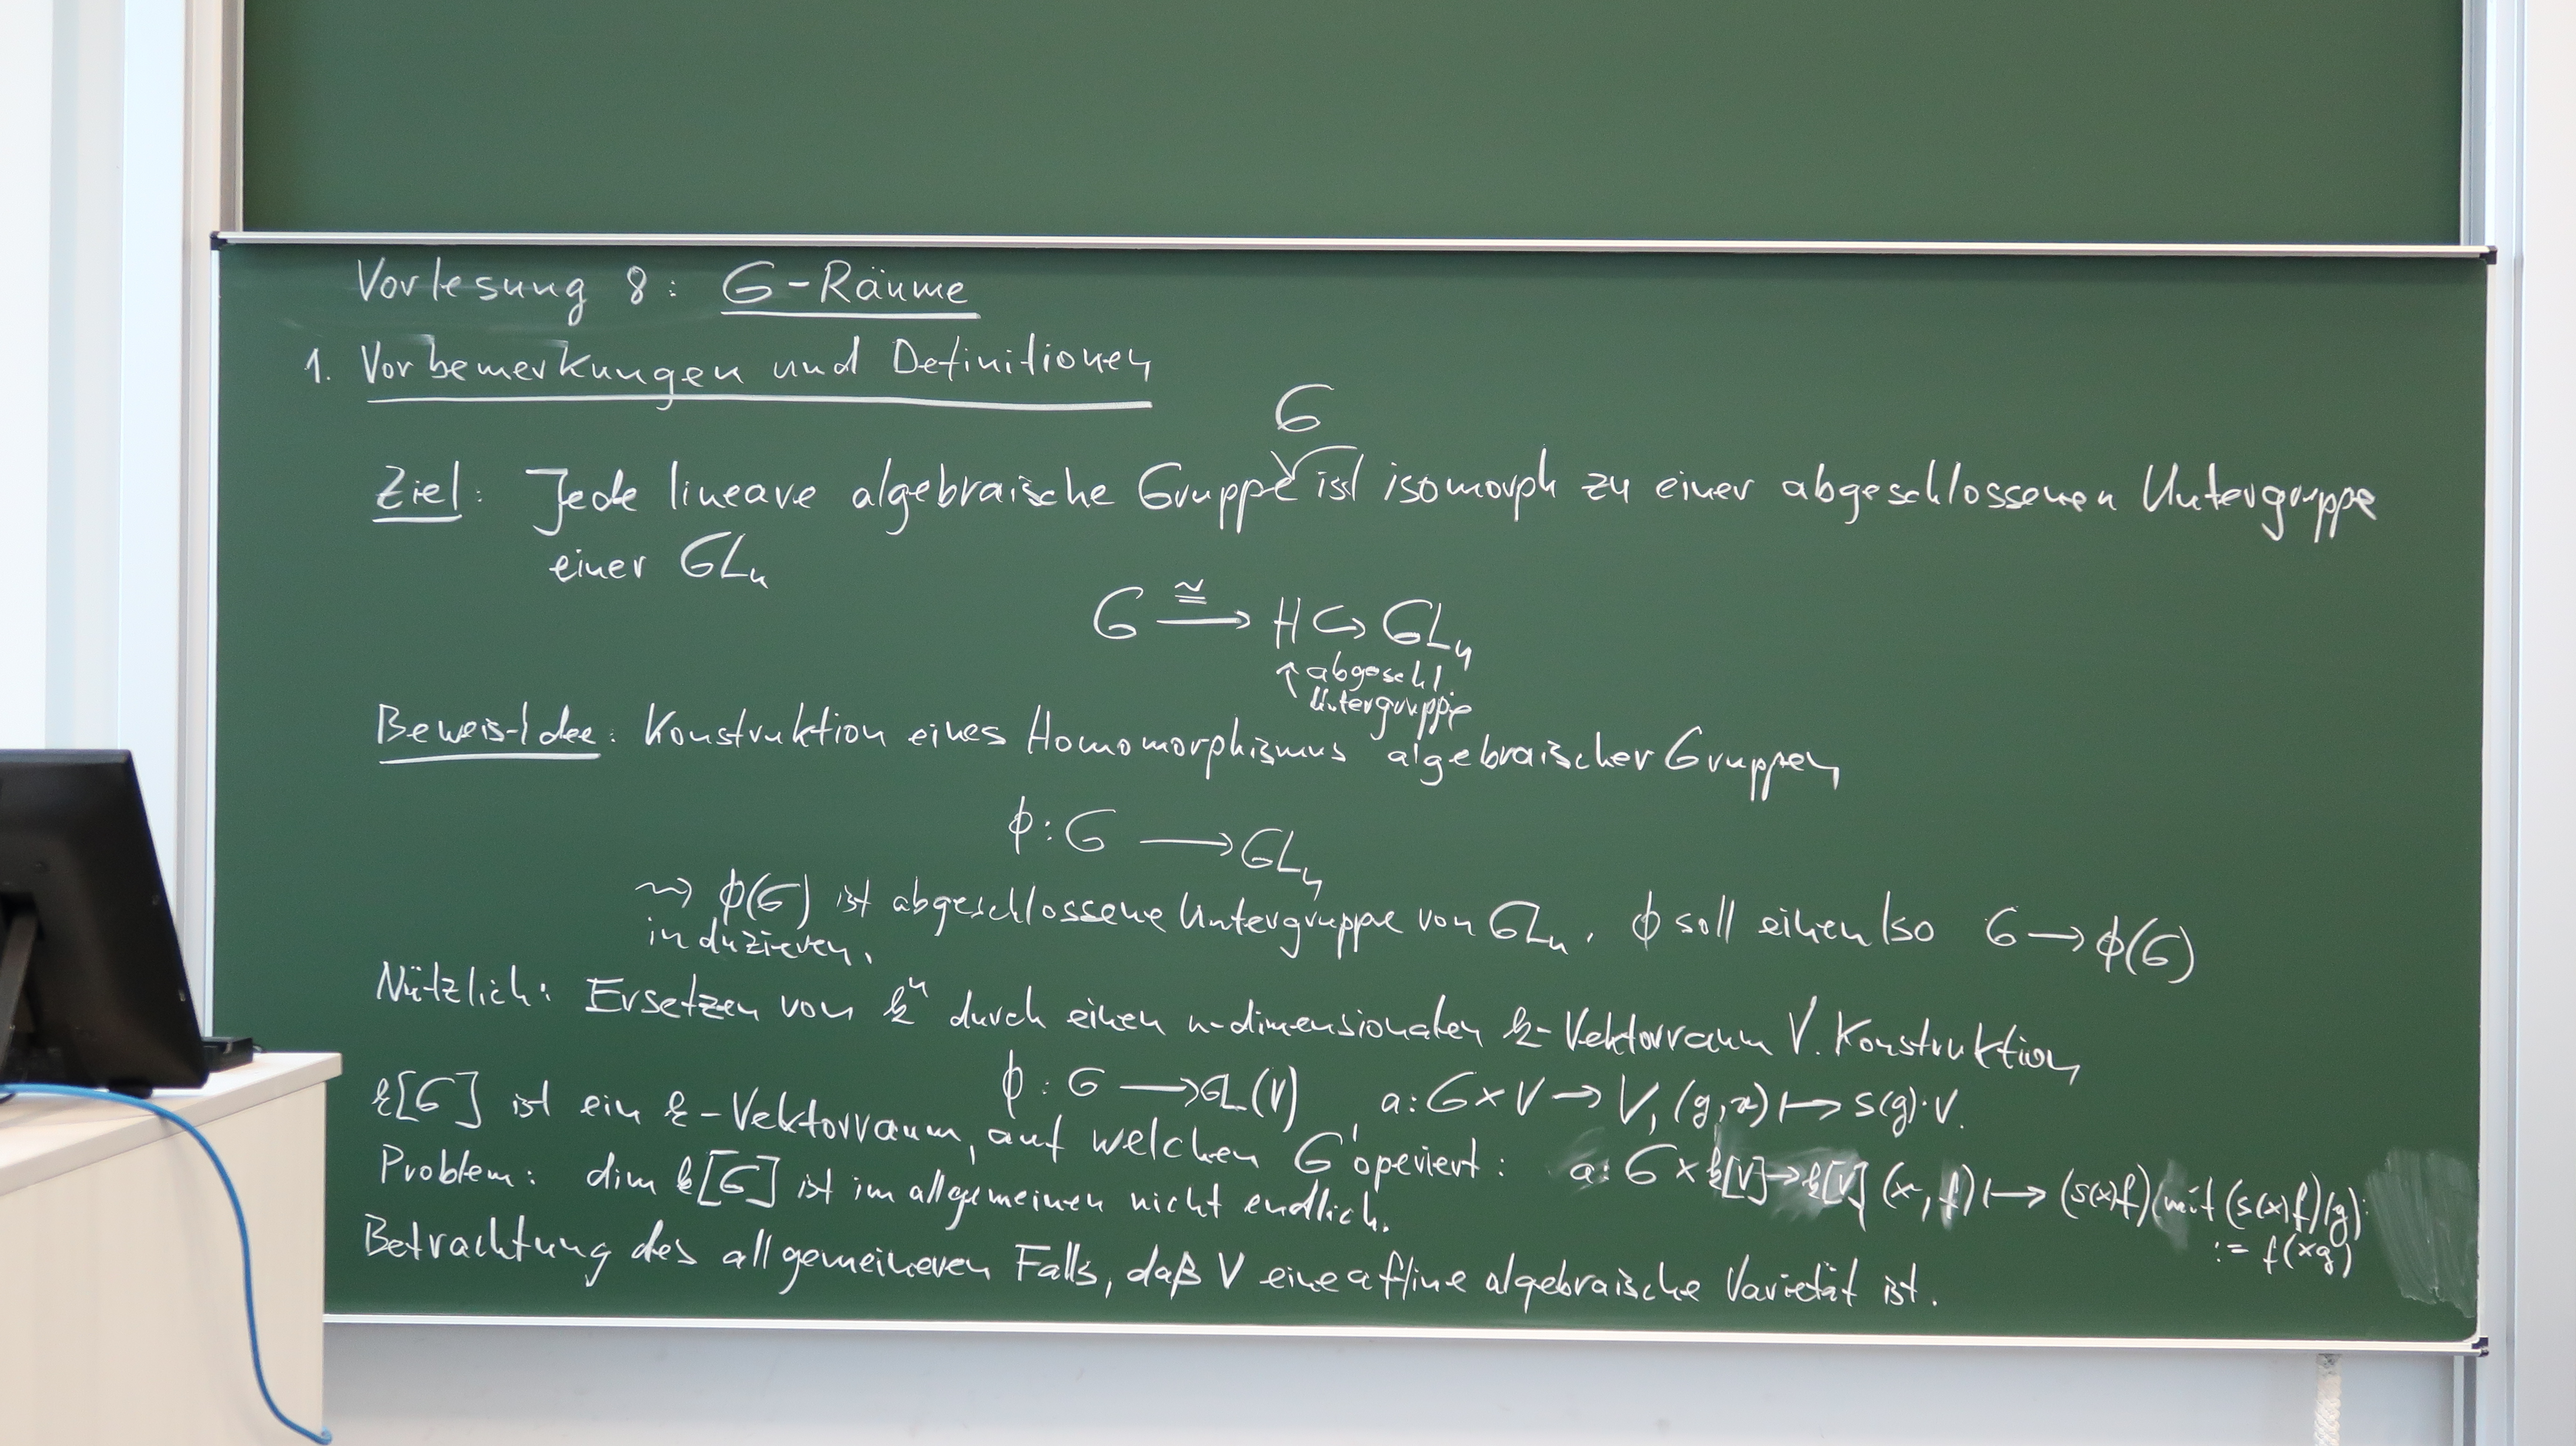 Vorlesung 8: G-Räume
1. Vorbemerkungen und Definitionen
G
Ziel: Jede lineare algebraische Gruppe ist isomorph zu einer abgeschlossenen Untergruppe
einer GLn
G ≅→ H ↪ GLn
↑ abgeschl.
Untergruppe
Beweis-Idee: Konstruktion eines Homomorphismus algebraischer Gruppen
ϕ: G → GLn
⇝ ϕ(G) ist abgeschlossene Untergruppe von GLn. ϕ soll einen Iso G → ϕ(G)
induzieren.
Nützlich: Ersetzen von kⁿ durch einen n-dimensionalen k-Vektorraum V. Konstruktion
ϕ: G → GL(V), a: G×V → V, (g,v) ↦ s(g)·v.
k[G] ist ein k-Vektorraum, auf welchen G operiert: a: G × k[V] → k[V] (x, f) ↦ (s(x)f) mit (s(x)f)(g)
:= f(xg)
Problem: dim k[G] ist im allgemeinen nicht endlich.
Betrachtung des allgemeineren Falls, daß V eine affine algebraische Varietät ist.